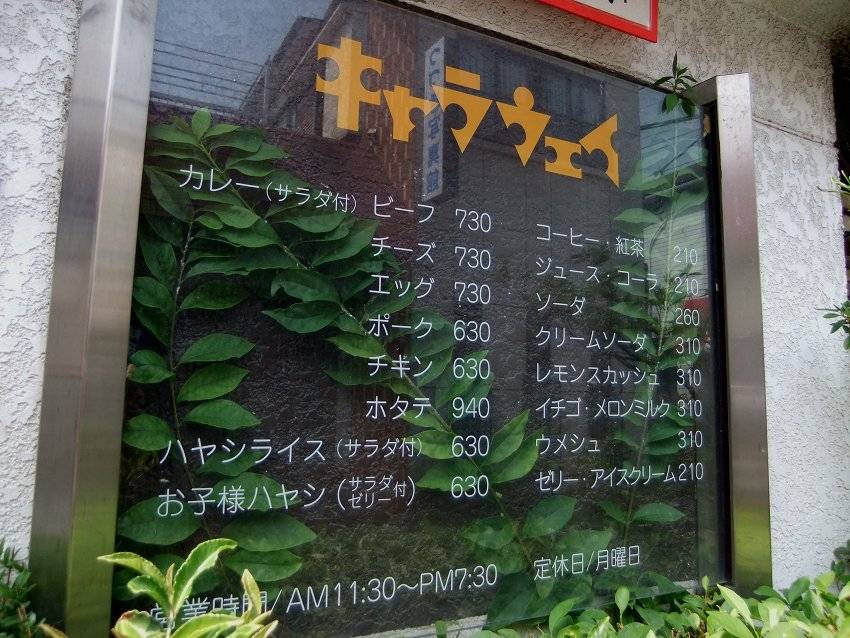 キャラウェイ
カレー(サラダ付) ビーフ 730
チーズ 730
エッグ 730
ポーク 630
チキン 630
ホタテ 940
ハヤシライス(サラダ付) 630
お子様ハヤシ(サラダゼリー付) 630
コーヒー・紅茶 210
ジュース・コーラ 210
ソーダ 260
クリームソーダ 310
レモンスカッシュ 310
イチゴ・メロンミルク 310
ウメシュ 310
ゼリー・アイスクリーム 210
営業時間/AM11:30〜PM7:30 定休日/月曜日